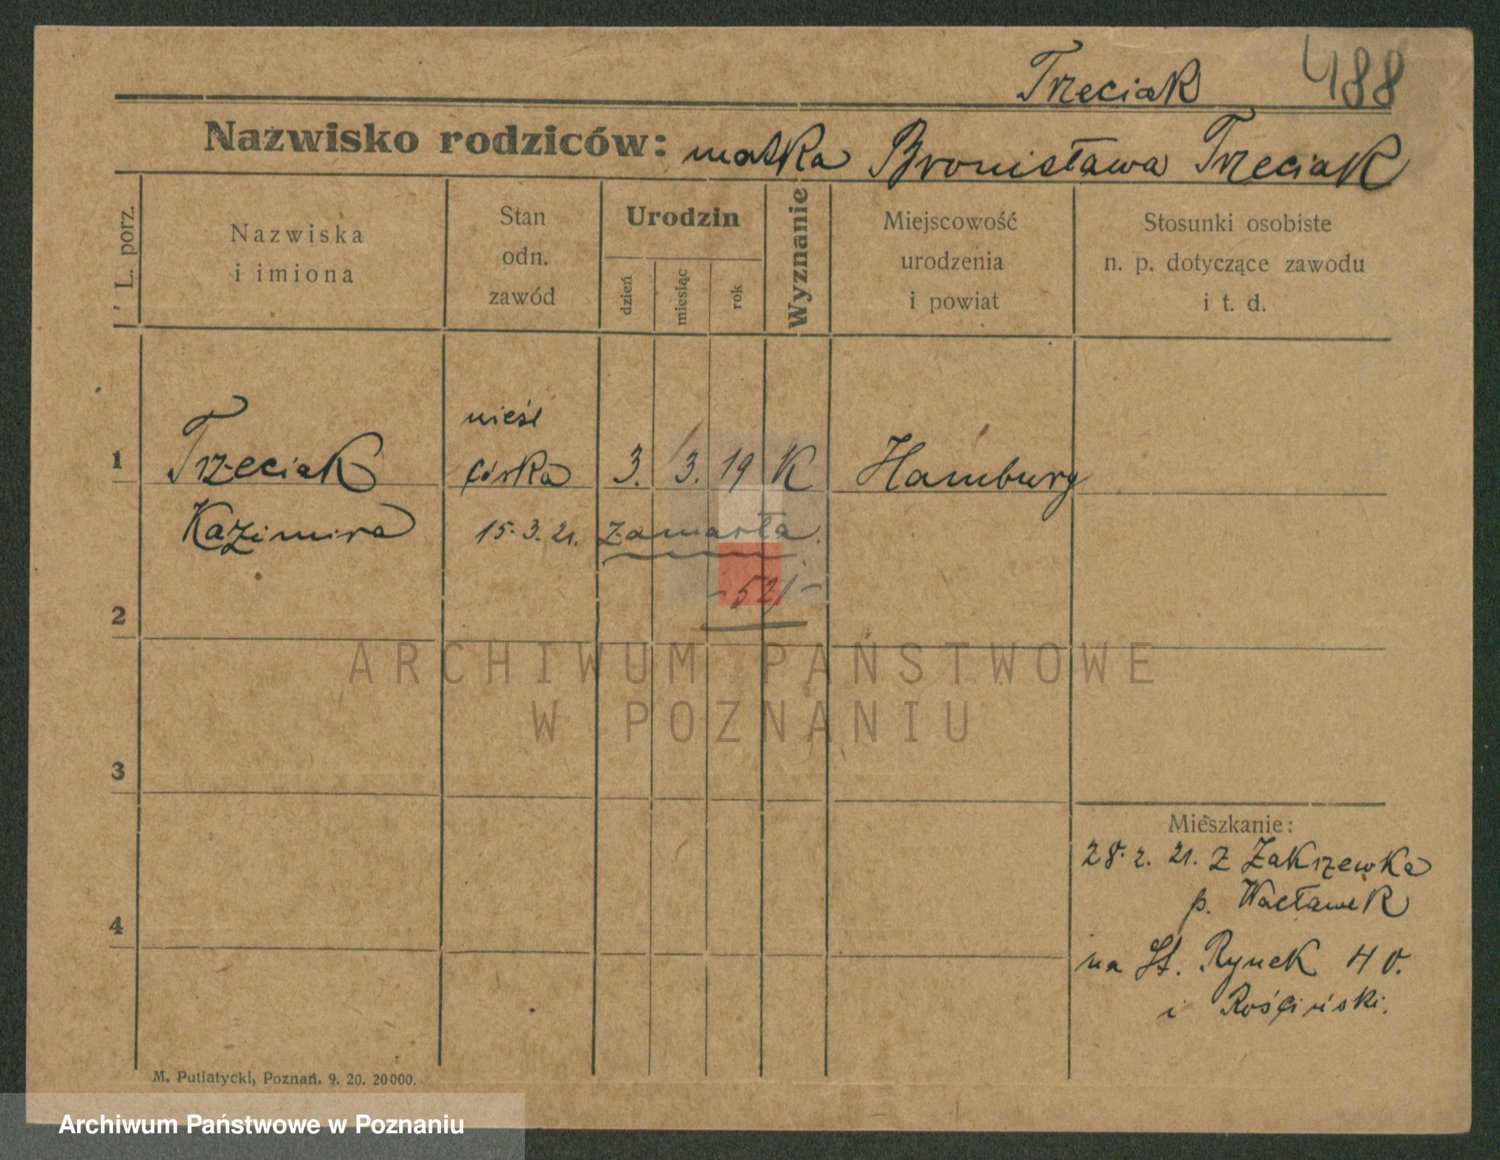 Trzeciak 488
Nazwisko rodziców: matka Bronisława Trzeciak
L. porz.
Nazwiska
i imiona
Stan
odn.
zawód
Urodzin
dzień
miesiąc
rok
Wyznanie
Miejscowość
urodzenia
i powiat
Stosunki osobiste
n. p. dotyczące zawodu
i t. d.
nieśl
1 Trzeciak córka 3. 3. 19 K Hamburg
Kazimira 15.3.21. zamarła.
-521-
2
ARCHIWUM PAŃSTWOWE
W POZNANIU
3
Mieszkanie:
28.2.21. z Zakrzewka
p. Wacławek
4
na St. Rynek 40.
i Rościński.
M. Putiatycki, Poznań. 9. 20. 20000.
Archiwum Państwowe w Poznaniu